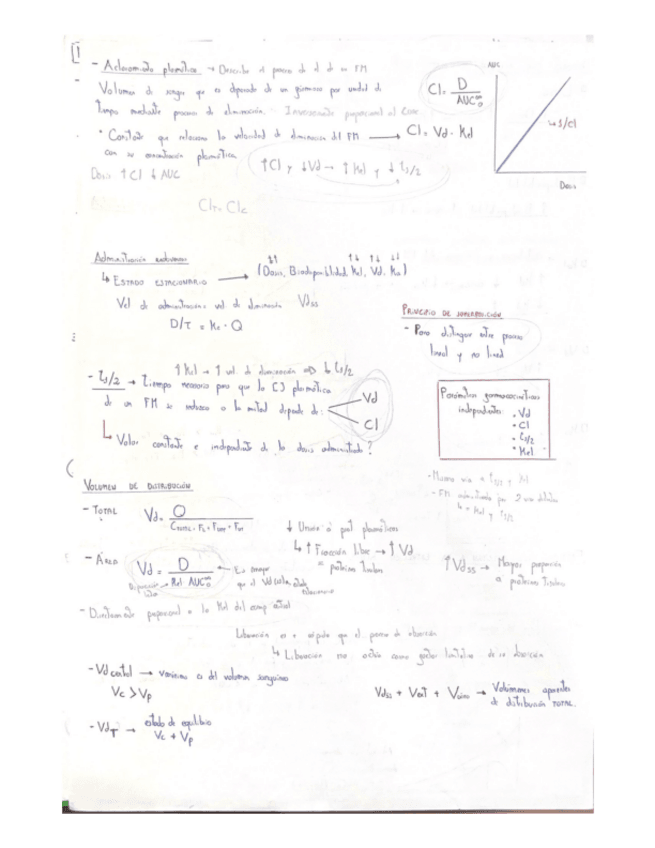 1
- Aclaramiento plasmático → Describe el proceso de el de un FM
Volumen de sangre que es depurado de un fármaco por unidad de
tiempo mediante procesos de eliminación. - Inversamente proporcional al Conc.
Cl = D / AUC₀^∞
AUC
↳ 1/Cl
Dosis
• Constante que relaciona la velocidad de eliminación del FM → Cl = Vd · Kel
con su concentración plasmática
Dosis ↑Cl ↓AUC
↑Cl y ↓Vd → ↑Kel y ↓t1/2
Clr, Clc
Administración
↳ ESTADO ESTACIONARIO → (Dosis, Biodisponibilidad, Kel, Vd, Ka)
Vel de administración = vel. de eliminación Vdss
D/τ = Ke · Q
PRINCIPIO DE SUPERPOSICIÓN
- Para distinguir entre proceso
lineal y no lineal
↑Kel → ↑ vel de eliminación ⇒ ↓t1/2
- t1/2 → Tiempo necesario para que la CJ plasmática
de un FM se reduzca a la mitad depende de:
Vd
Cl
↳ Valor constante e independiente de la dosis administrada?
Parámetros farmacocinéticos
independientes
• Vd
• Cl
• t1/2
• Kel
- Misma vía = t1/2 y Kel
- FM administrado por 2 vías distintas
↳ = Kel y t1/2
VOLUMEN DE DISTRIBUCIÓN
- TOTAL Vd =
↓ Unión a prot plasmáticas
↳ ↑ Fracción libre → ↑Vd
= proteínas tisulares
- ÁREA Vd = D / Kel · AUC₀^∞
← Es mayor
que el Vd
↑Vdss → Mayor proporción
a proteínas tisulares
- Directamente proporcional a la Kel del comp central
Liberación es + rápida que el proceso de absorción
↳ Liberación no actúa como factor limitativo de la absorción
- Vd central → volumen sanguíneo
Vc > Vp
Vdss + Vext + → Volúmenes aparentes
de distribución TOTAL.
- VdT → estado de equilibrio
Vc + Vp